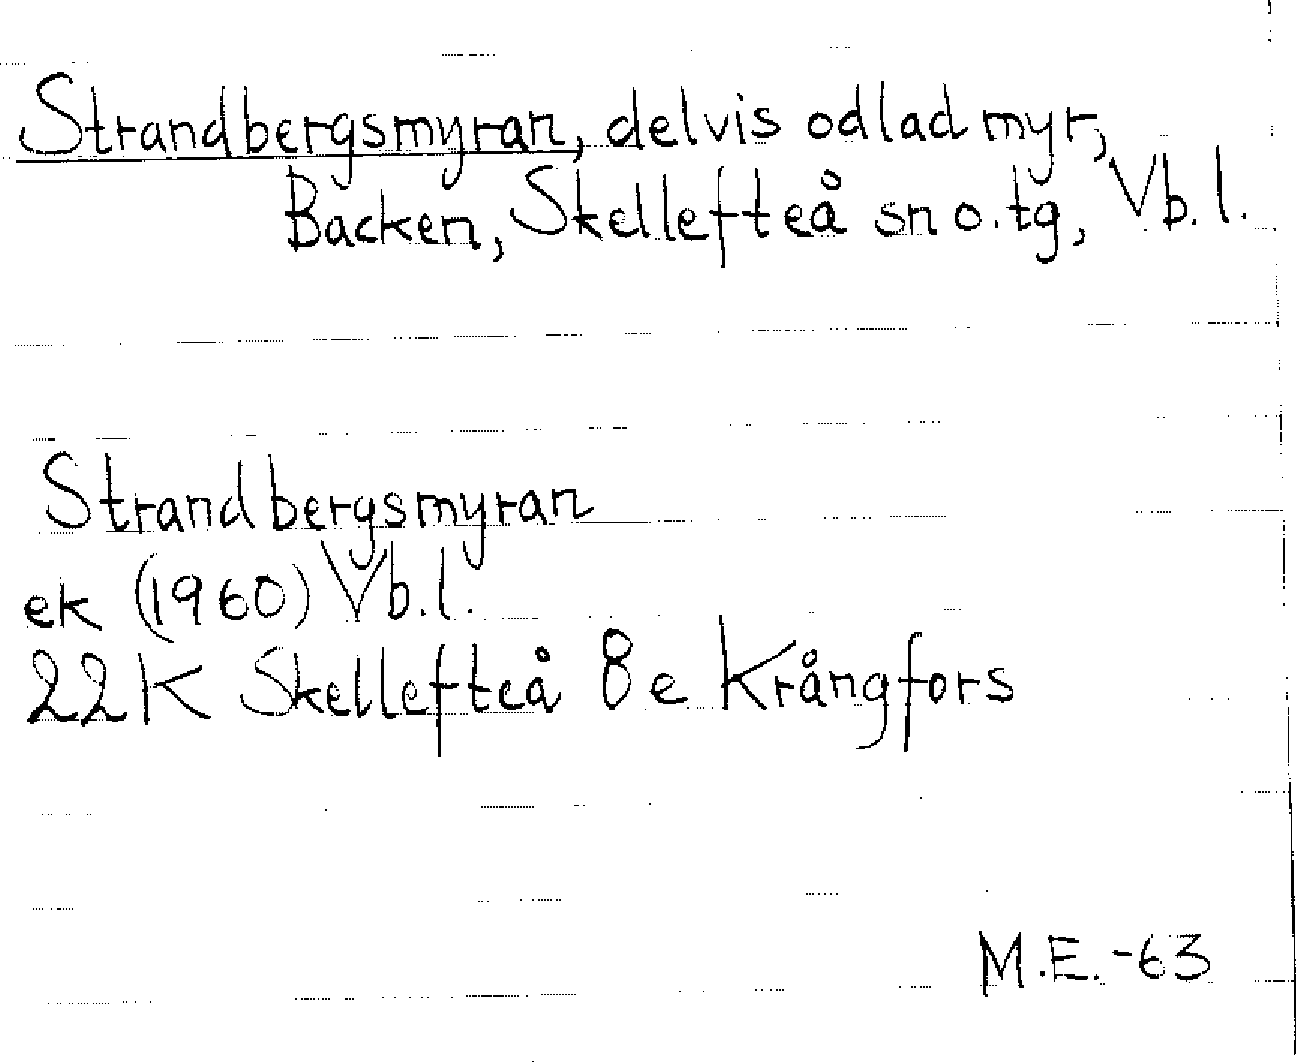 Strandbergsmyran, delvis odlad myr,
Backen, Skellefteå sn o. tg, Vb. l.
Strandbergsmyran
ek (1960) Vb. l.
22K Skellefteå 8e Krångfors
M.E. -63